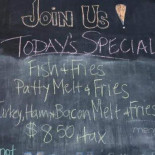 Join Us!
Today's Special
Fish & Fries
Patty Melt & Fries
Turkey, Ham & Bacon Melt & Fries
$8.50 + tax
not